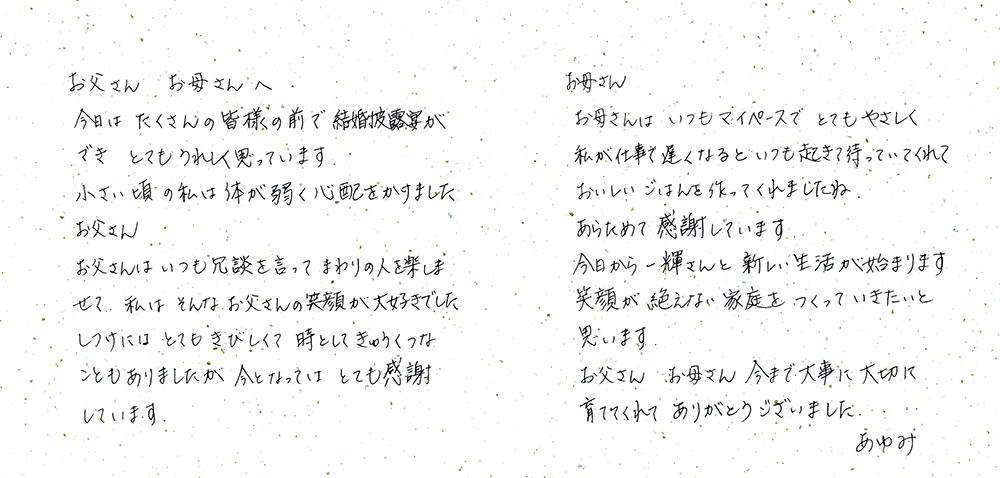 お父さん お母さんへ
今日は たくさんの皆様の前で結婚披露宴が
でき とてもうれしく思っています.
小さい頃の私は体が弱く心配をかけました
お父さん
お父さんはいつも冗談を言って まわりの人を楽しま
せて. 私は そんなお父さんの笑顔が大好きでした
しつけにはとてもきびしくて 時としてきゅうくつな
こともありましたが 今となっては とても感謝
しています.
お母さん
お母さんは いつもマイペースで とてもやさしく
私が仕事で遅くなると いつも起きて待っていてくれて
おいしいごはんを作ってくれましたね.
あらためて感謝しています
今日から一輝さんと 新しい生活が始まります
笑顔が 絶えない家庭を つくっていきたいと
思います.
お父さん お母さん 今まで大事に大切に
育ててくれて ありがとうございました.
あゆみ